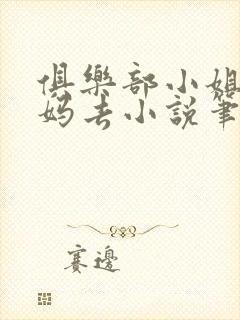 俱樂部小姐
妈去小說筆
賽邊